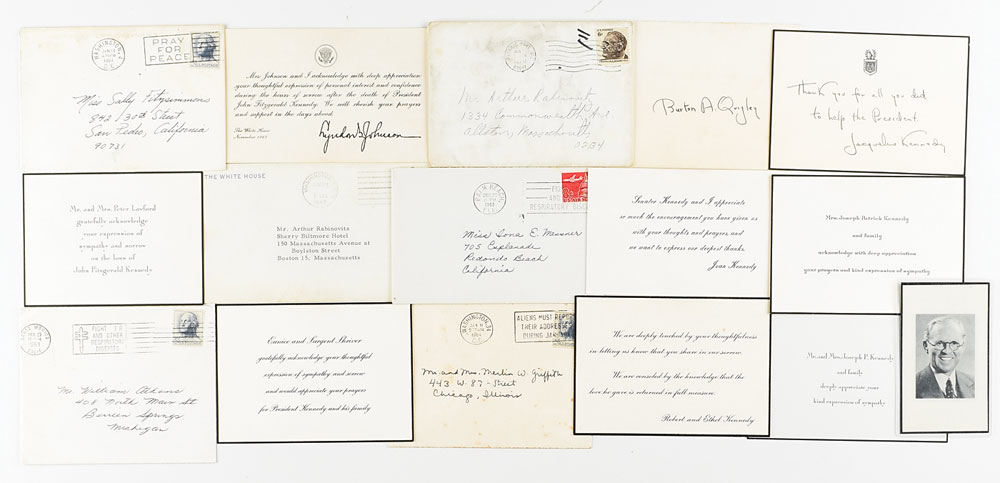 WASHINGTON, D.C.
PRAY
FOR
PEACE
Miss Sally Fitzsimmons
842 / 30th Street
San Pedro, California
90731
Mrs. Johnson and I acknowledge with deep appreciation
your thoughtful expression of personal interest and confidence
during the hours of sorrow after the death of President
John Fitzgerald Kennedy. We will cherish your prayers
and support in the days ahead.
The White House
November 1963
Lyndon B. Johnson
Mr. Arthur Rabinovitz
1334 Commonwealth Ave
Allston, Massachusetts
Burton A Quigley
Thank you for all you did
to help the President
Jacqueline Kennedy
Mr. and Mrs. Peter Lawford
gratefully acknowledge
your expression of
sympathy and sorrow
on the loss of
John Fitzgerald Kennedy
THE WHITE HOUSE
Mr. Arthur Rabinovitz
Sherry Biltmore Hotel
150 Massachusetts Avenue at
Boylston Street
Boston 15, Massachusetts
PALM BEACH
FLA.
RESPIRATORY
Miss Lona E. Messner
705 Esplanade
Redondo Beach
California
Senator Kennedy and I appreciate
so much the encouragement you have given us
with your thoughts and prayers, and
we want to express our deepest thanks.
Joan Kennedy
Mrs. Joseph Patrick Kennedy
and family
acknowledge with deep appreciation
your prayers and kind expression of sympathy
FIGHT TB
AND OTHER
RESPIRATORY
DISEASES
Mr. William Adams
408 North Main St
Berrien Springs
Michigan
Eunice and Sargent Shriver
gratefully acknowledge your thoughtful
expression of sympathy and sorrow
and would appreciate your prayers
for President Kennedy and his family
WASHINGTON, D.C.
ALIENS MUST REPORT
THEIR ADDRESSES
DURING JANUARY
Mr. and Mrs. Merlin W. Griffith
443 W. 87 - Street
Chicago, Illinois
We are deeply touched by your thoughtfulness
in letting us know that you share in our sorrow.
We are consoled by the knowledge that the
love he gave is returned in full measure.
Robert and Ethel Kennedy
Mr. and Mrs. Joseph P. Kennedy
and family
deeply appreciate your
kind expression of sympathy